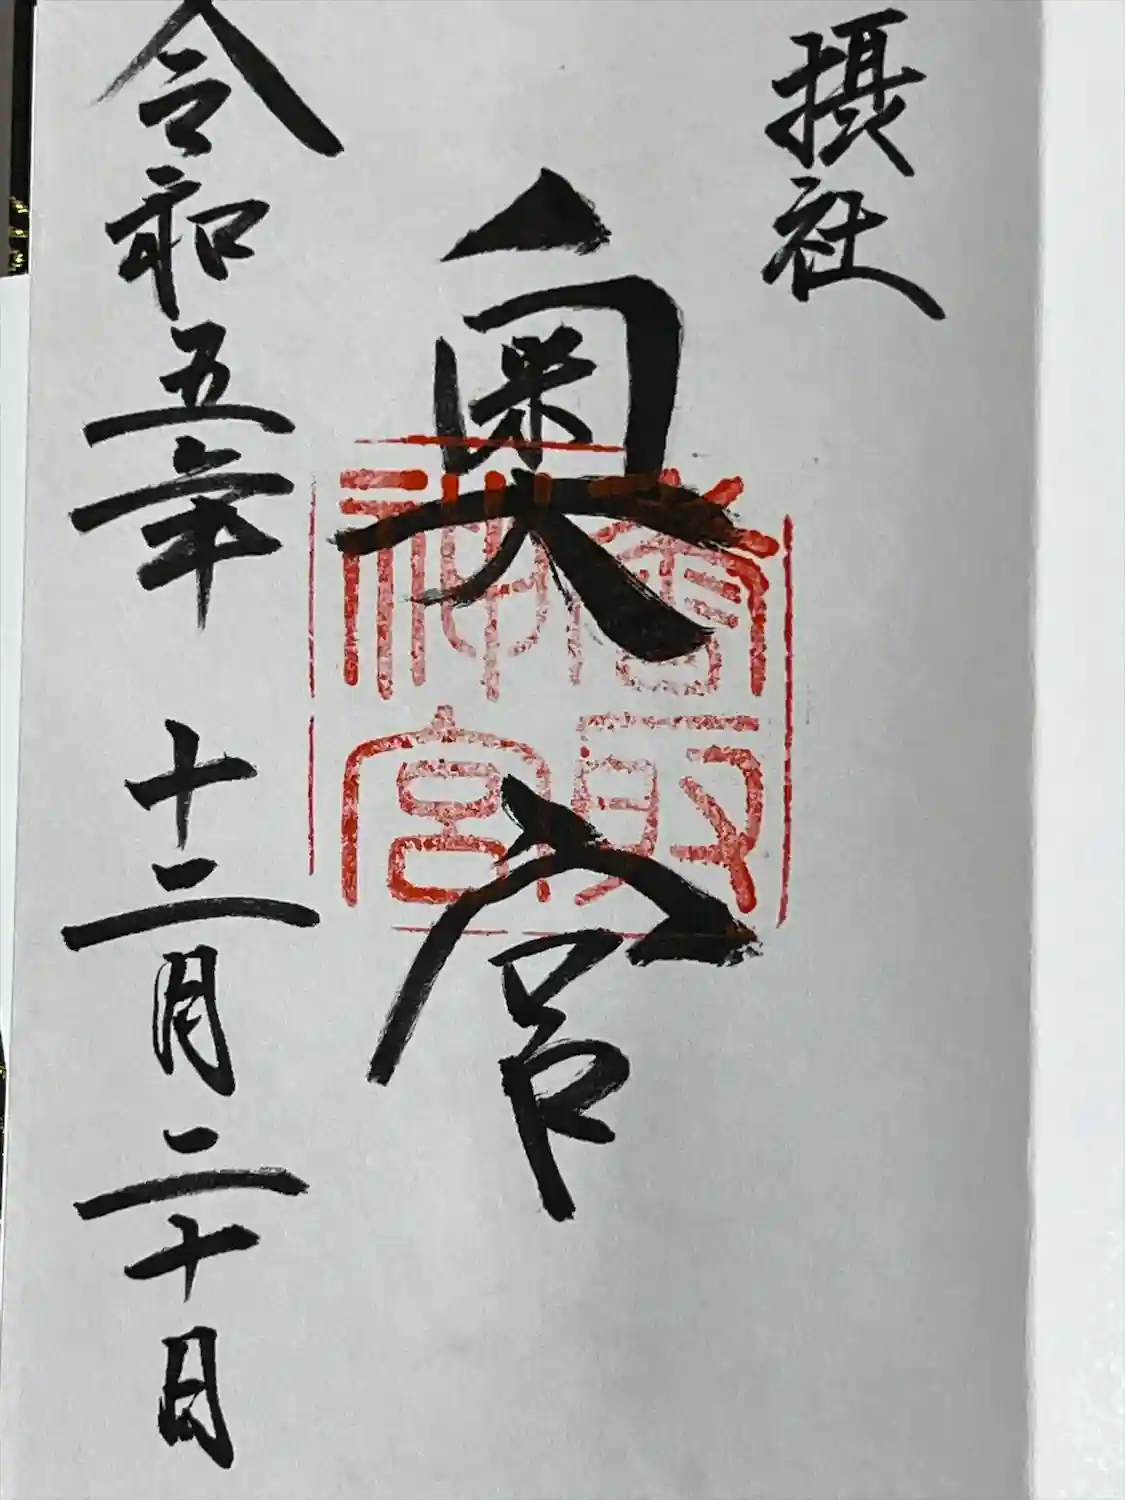 摂社
奥宮
香取
神宮
令和五年 十二月二十日